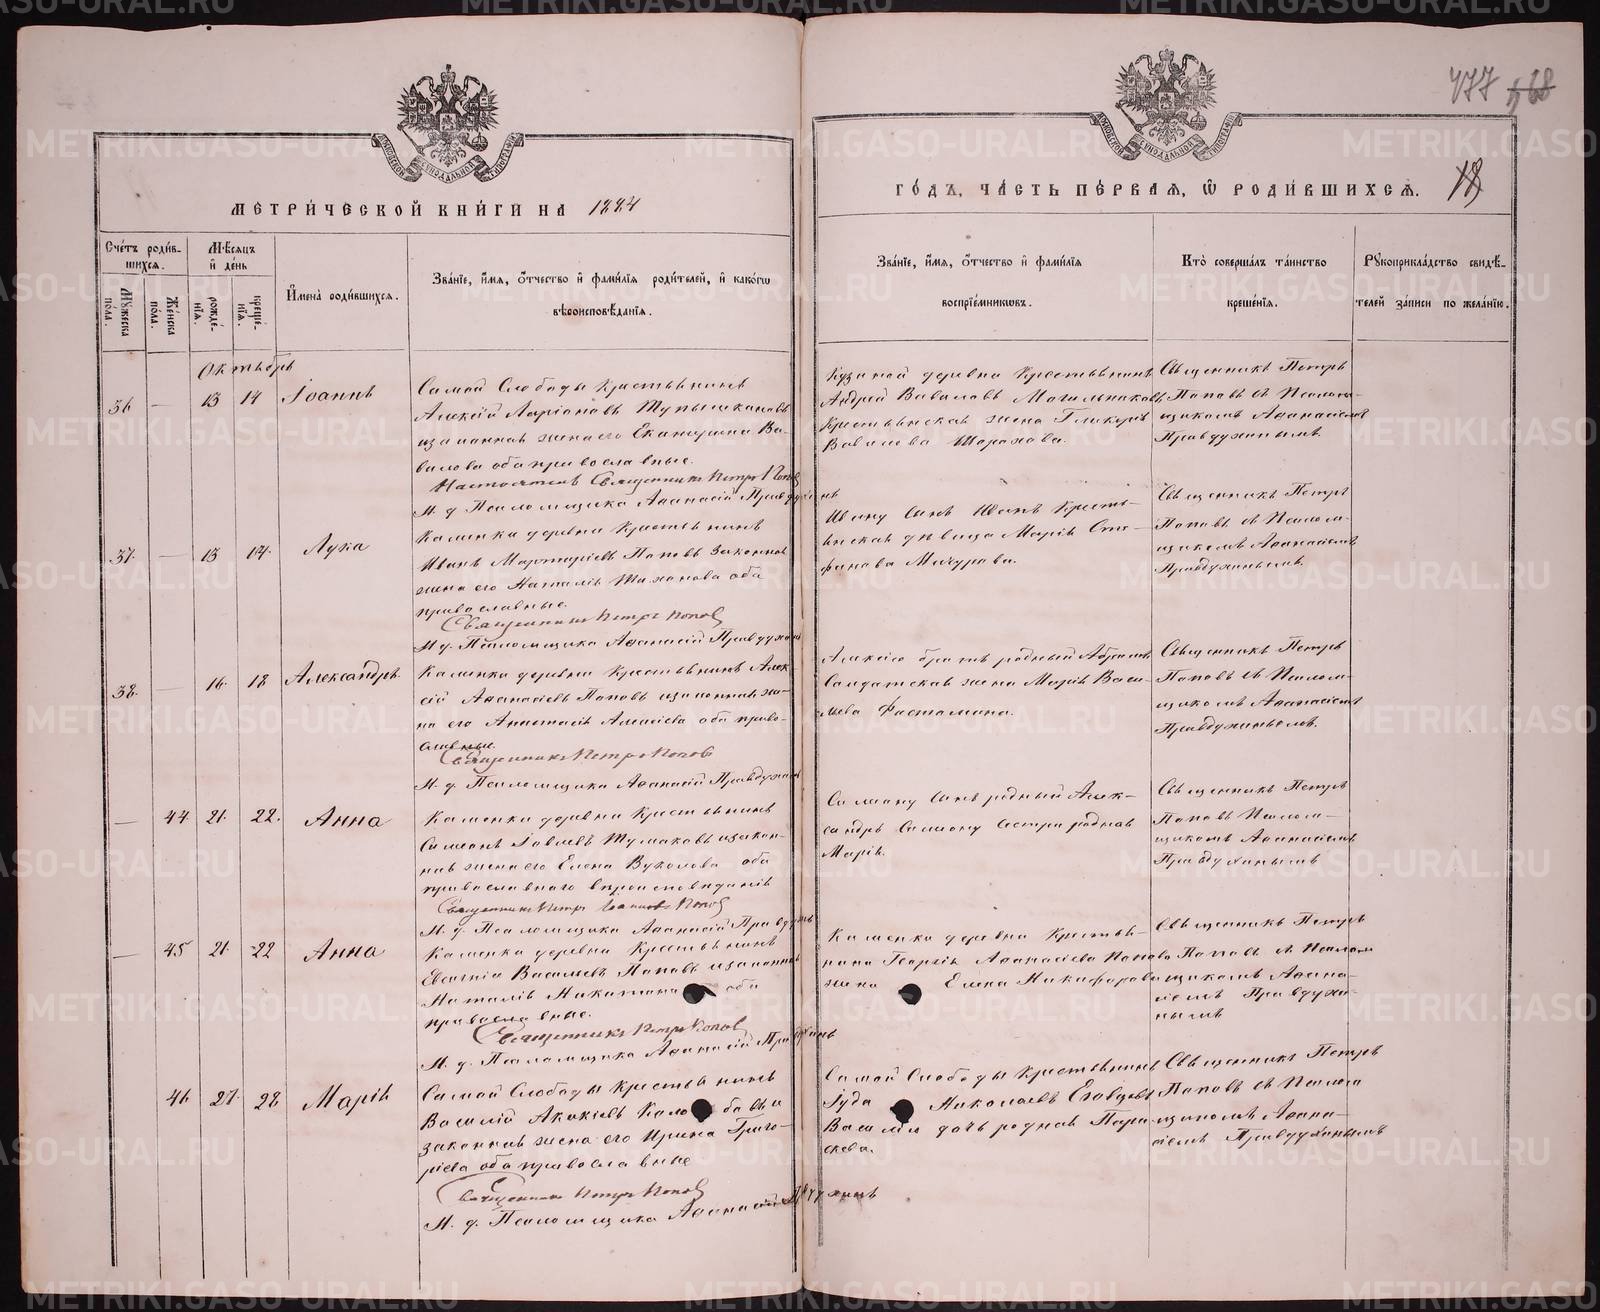 477 568
18
МЕТРИЧЕСКОЙ КНИГИ НА 1884
ГОДЪ, ЧАСТЬ ПЕРВАЯ, Ѿ РОДИВШИХСЯ.
Счетъ родившихся.
Мужеска пола.
Женска пола.
Мѣсяцъ и день
рожденія.
крещенія.
Имена родившихся.
Званіе, имя, отчество и фамилія родителей, и какогѡ
вѣроисповѣданія.
Званіе, имя, отчество и фамилія
воспріемниковъ.
Кто совершалъ таинство
крещенія.
Рукоприкладство свидѣ-
телей записи по желанію.
Октябрь
36 — 13 14 Іоаннъ
Самой Слободы крестьянинъ
Алексій Ларіоновъ
законная жена его Екатерина Ва-
вилова оба православные.
Настоятель Священникъ Петръ Поповъ
И. д. Псаломщика Афанасій Правдухинъ
деревни крестьянинъ
Андрей Вавиловъ Могильниковъ
Крестьянская жена Гликерія
Вавилова
Священникъ Петръ
Поповъ съ Псалом-
щикомъ Афанасіемъ
Правдухинымъ.
37. — 13 14. Лука
Каменки деревни Крестьянинъ
Иванъ Поповъ законная
жена его Наталія оба
православные.
Священникъ Петръ Поповъ
И. д. Псаломщика Афанасій Правдухинъ
Ивану сынъ Иванъ Кресть-
янская дѣвица Марія Сте-
фанова Мичурова.
Священникъ Петръ
Поповъ съ Псалом-
щикомъ Афанасіемъ
Правдухинымъ.
38. — 16. 18 Александръ
Каменки деревни Крестьянинъ Алек-
сій Афанасіевъ Поповъ законная же-
на его Анастасія Алексіева оба право-
славные.
Священникъ Петръ Поповъ
И. д. Псаломщика Афанасій Правдухинъ
Алексію братъ родный Абрамъ
Солдатская жена Марія Васи-
льева
Священникъ Петръ
Поповъ съ Псалом-
щикомъ Афанасіемъ
Правдухинымъ.
— 44 21. 22. Анна
Каменки деревни Крестьянинъ
Симеонъ Іовлевъ Тумаковъ закон-
ная жена его Елена Вуколова оба
православнаго вѣроисповѣданія
Священникъ Петръ Іоанновъ Поповъ
И. д. Псаломщика Афанасій Правдухинъ
Симеону сынъ родный Алек-
сандръ Симеону сестра родная
Марія.
Священникъ Петръ
Поповъ Псалом-
щикомъ Афанасіемъ
Правдухинымъ
— 45 21. 22 Анна
Каменки деревни Крестьянинъ
Евгеній Васильевъ Поповъ законная
Наталія Никитина оба
православные.
Священникъ Петръ Поповъ
И. д. Псаломщика Афанасій Правдухинъ
Каменки деревни Крестья-
нинъ Георгій Афанасіевъ Поповъ
жена Елена Никифорова
Священникъ Петръ
Поповъ съ Псалом-
щикомъ Афана-
сіемъ Правдухи-
нымъ
46 27. 28 Марія
Самой Слободы Крестьянинъ
Василій Акакіевъ
законная жена его Ирина Григо-
ріева оба православные
Священникъ Петръ Поповъ
И. д. Псаломщика Афанасій Правдухинъ
Самой Слободы Крестьянинъ
Іуда Николаевъ
Василія дочь родная Пара-
скева.
Священникъ Петръ
Поповъ съ Псалом-
щикомъ Афана-
сіемъ Правдухинымъ
METRIKI.GASO-URAL.RU